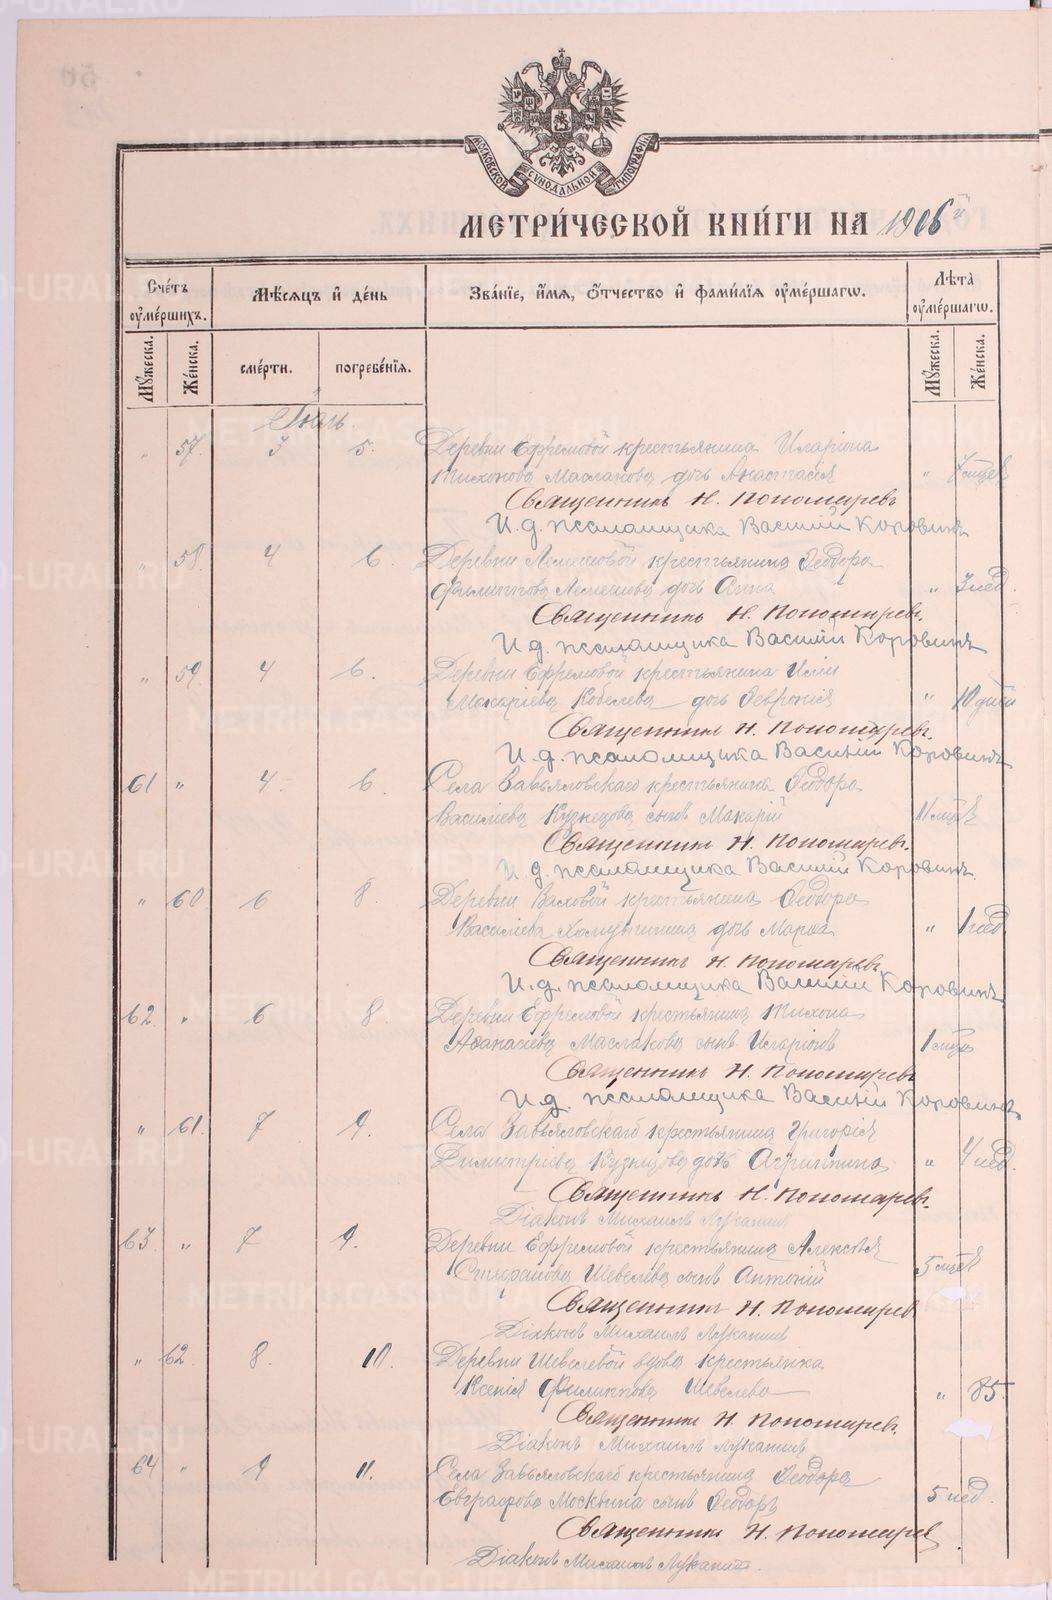 МОСКОВСКОЙ СѴНОДАЛЬНОЙ ТИПОГРАФІИ
МЕТРИ́ЧЕСКОЙ КНИ́ГИ НА 1906й
Сче́тъ ᲂу҆ме́ршихъ.
Мѣ́сѧцъ и҆ де́нь
Зва́нїе, и҆́мѧ, ѻ҆́тчество и҆ фами́лїѧ ᲂу҆ме́ршагѡ.
Лѣ́та ᲂу҆ме́ршагѡ.
Мꙋ́жеска. Же́нска. сме́рти. погребе́нїѧ. Мꙋ́жеска. Же́нска.
Іюль
" 57. 3 5. Деревни Ефремовой крестьянина Иларіона
Тихонова Маслакова дочь Анастасія " 7 мцев
Священникъ Н. Пономаревъ
И. д. псаломщика Василій Коровинъ
" 58. 4 6. Деревни Лемешовой крестьянина Ѳеодора
Филиппова Лемешова дочь Анна " 3 нед.
Священникъ Н. Пономаревъ.
И. д. псаломщика Василій Коровинъ
" 59. 4 6. Деревни Ефремовой крестьянина Иліи
Макаріева Кобелева дочь Февронія " 10 дней
Священникъ Н. Пономаревъ.
И. д. псаломщика Василій Коровинъ
61 " 4 6. Села Завьяловскаго крестьянина Ѳеодора
Василіева Кузнецова сынъ Макарій 11 мцев
Священникъ Н. Пономаревъ.
И. д. псаломщика Василій Коровинъ.
" 60. 6 8. Деревни Ваховой крестьянина Ѳеодора
Василіева дочь Марѳа " 1 нед
Священникъ Н. Пономаревъ.
И. д. псаломщика Василій Коровинъ
62. " 6 8. Деревни Ефремовой крестьянина Тихона
Аѳанасіева Маслакова сынъ Иларіонъ 1 мцъ
Священникъ Н. Пономаревъ
И. д. псаломщика Василій Коровинъ
" 61. 7 9. Села Завьяловскаго крестьянина Григорія
Димитріева Кузнецова дочь Агриппина " 4 нед.
Священникъ Н. Пономаревъ.
Діаконъ Михаилъ Луканинъ
63. " 7 9. Деревни Ефремовой крестьянина Алексѣя
Стефанова Шевелева сынъ Антоній 5 мцев
Священникъ Н. Пономаревъ
Діаконъ Михаилъ Луканинъ
" 62. 8. 10. Деревни Шевелевой вдова крестьянка
Ксенія Филиппова Шевелева " 85.
Священникъ Н. Пономаревъ.
Діаконъ Михаилъ Луканинъ
64 " 9 11. Села Завьяловскаго крестьянина Ѳеодора
Евграфова Москвина сынъ Ѳеодоръ 5 нед.
Священникъ Н. Пономаревъ.
Діаконъ Михаилъ Луканинъ.
METRIKI.GASO-URAL.RU